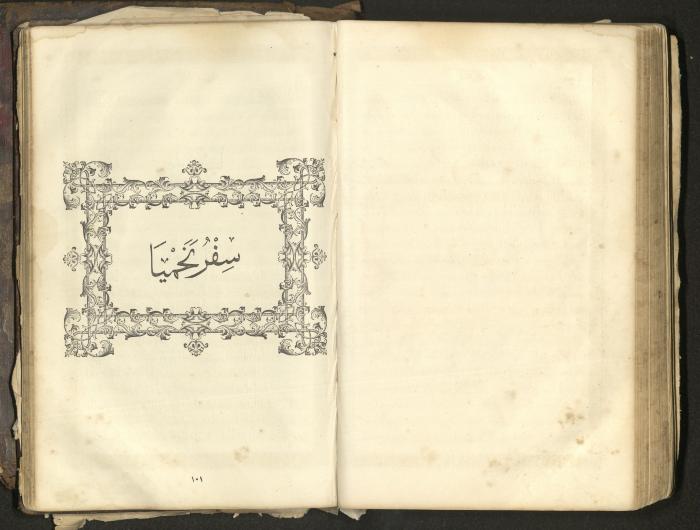 سِفْرُ نَحَمْيَا
١٠١